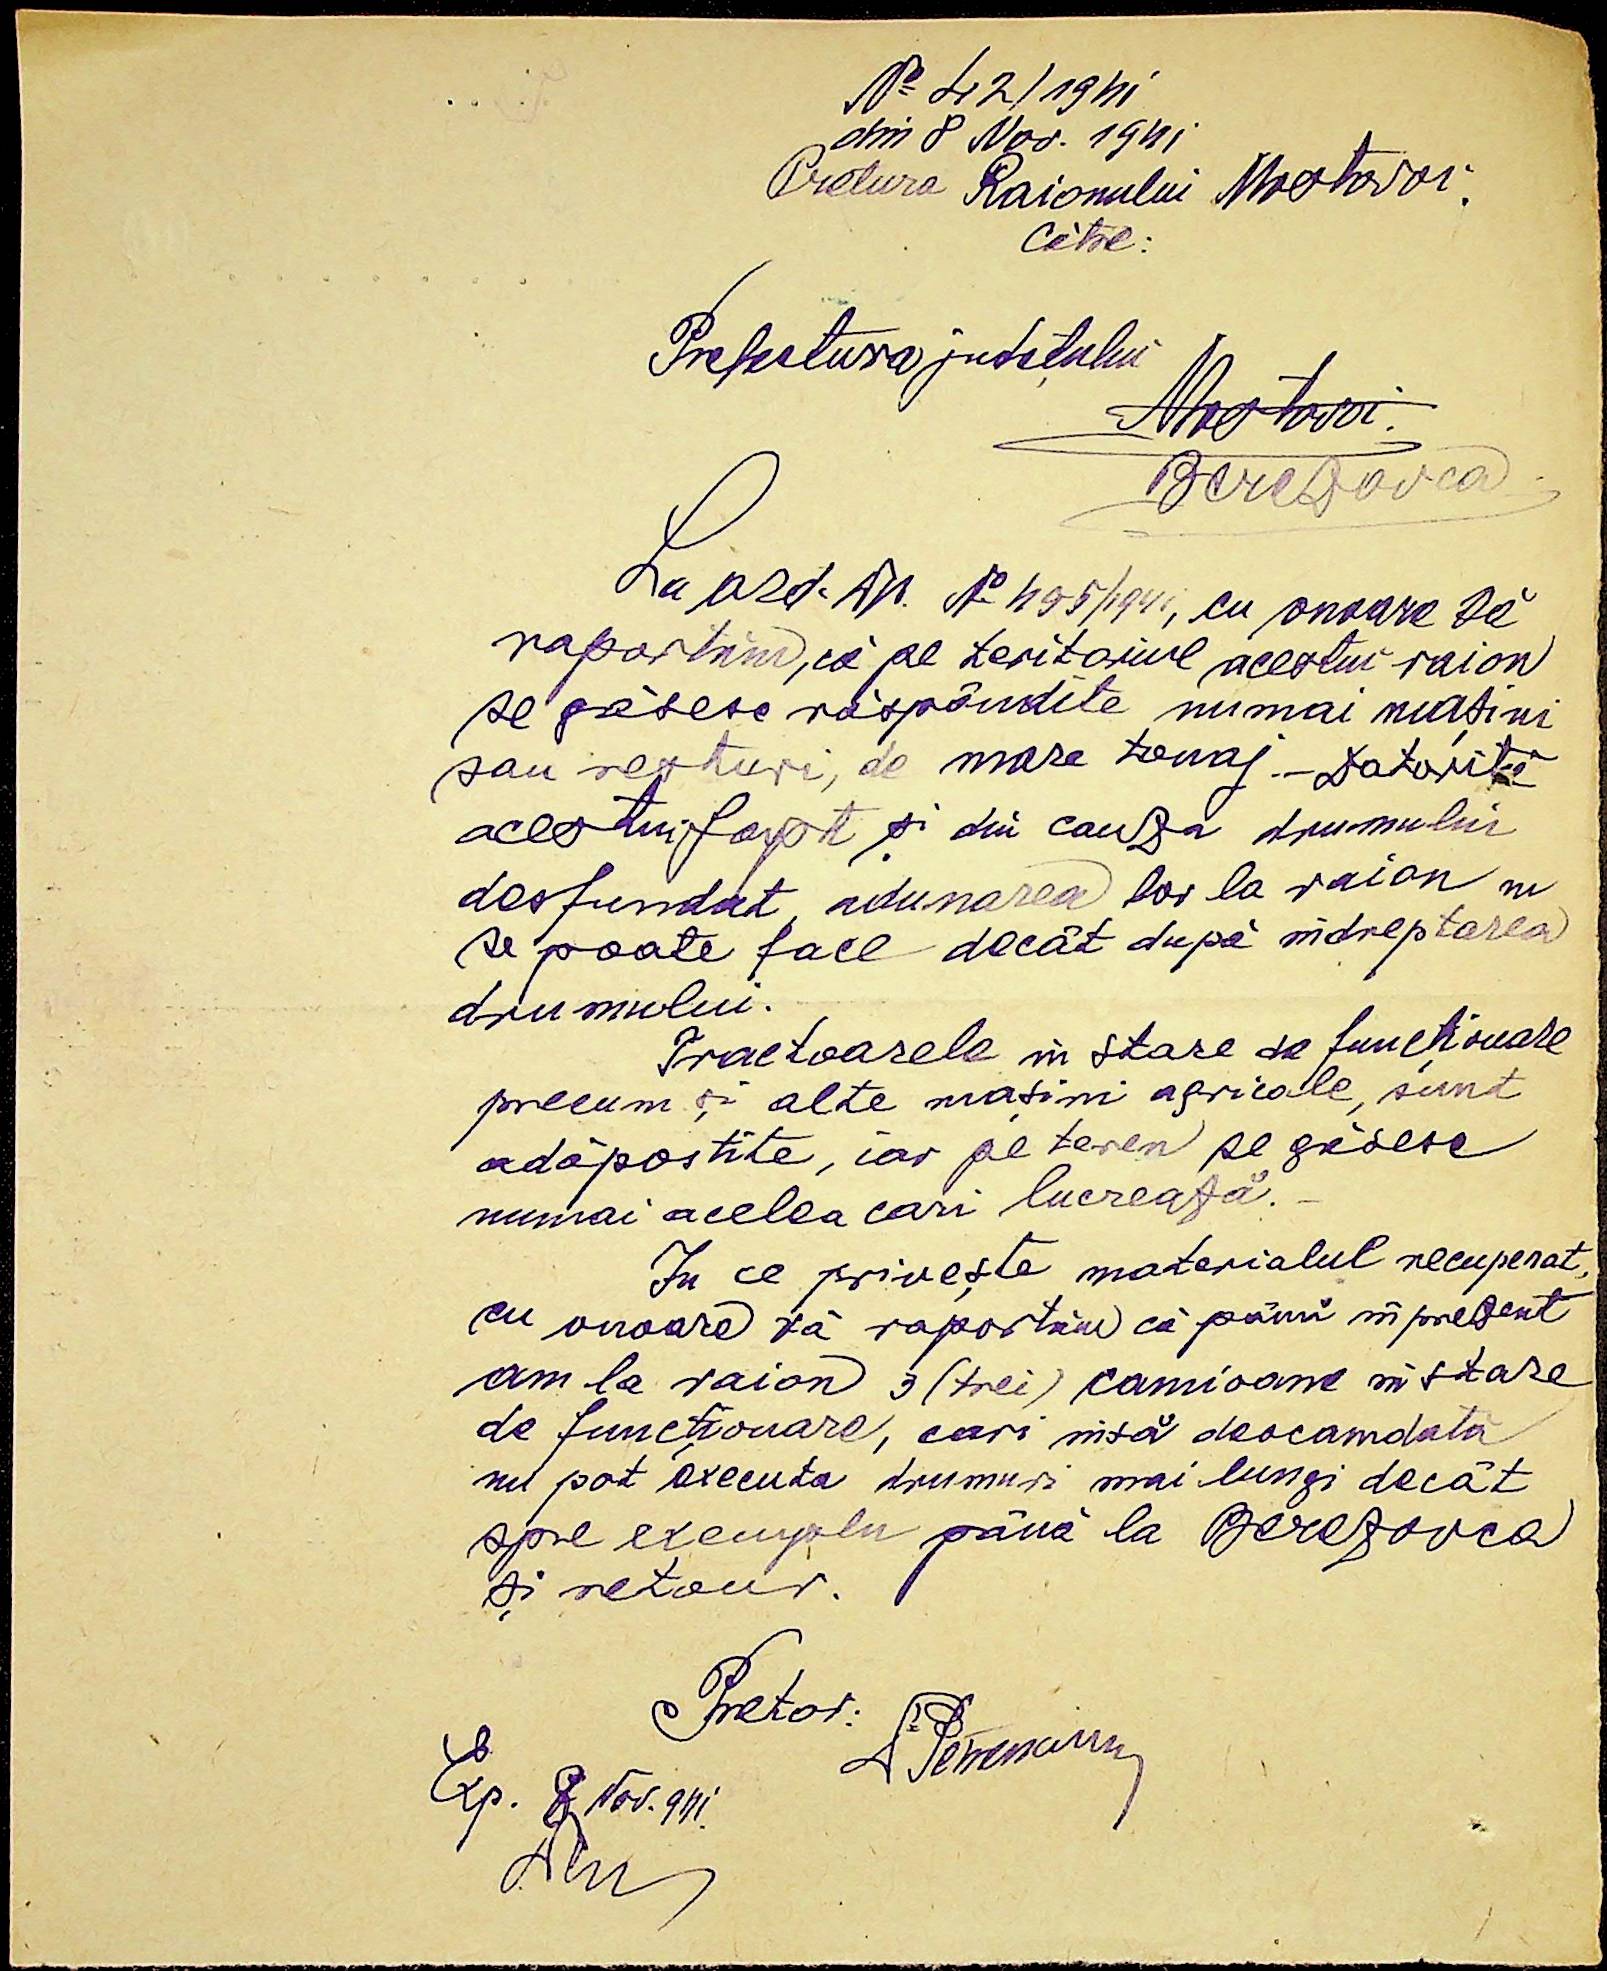 Nº 42/1941
din 8 Nov. 1941
Pretura Raionului Mostovoi.
Către:
Prefectura județului
Mostovoi.
Berezovca
La ord. Dv. Nº 495/1941, cu onoare vă
raportăm, că pe teritoriul acestui raion
se găsesc răspândite numai mașini
sau resturi, de mare tonaj. – Datorită
acestui fapt și din cauza drumului
desfundat, adunarea lor la raion nu
se poate face decât după îndreptarea
drumului.
Tractoarele în stare de funcționare
precum și alte mașini agricole, sunt
adăpostite, iar pe teren se găsesc
numai acelea cari lucrează. –
In ce privește materialul recuperat,
cu onoare vă raportăm că până în prezent
am la raion 3 (trei) camioane în stare
de funcționare, cari însă deocamdată
nu pot executa drumuri mai lungi decât
spre exemplu până la Berezovca
și retour.
Pretor:
Exp. 8 Nov. 941.